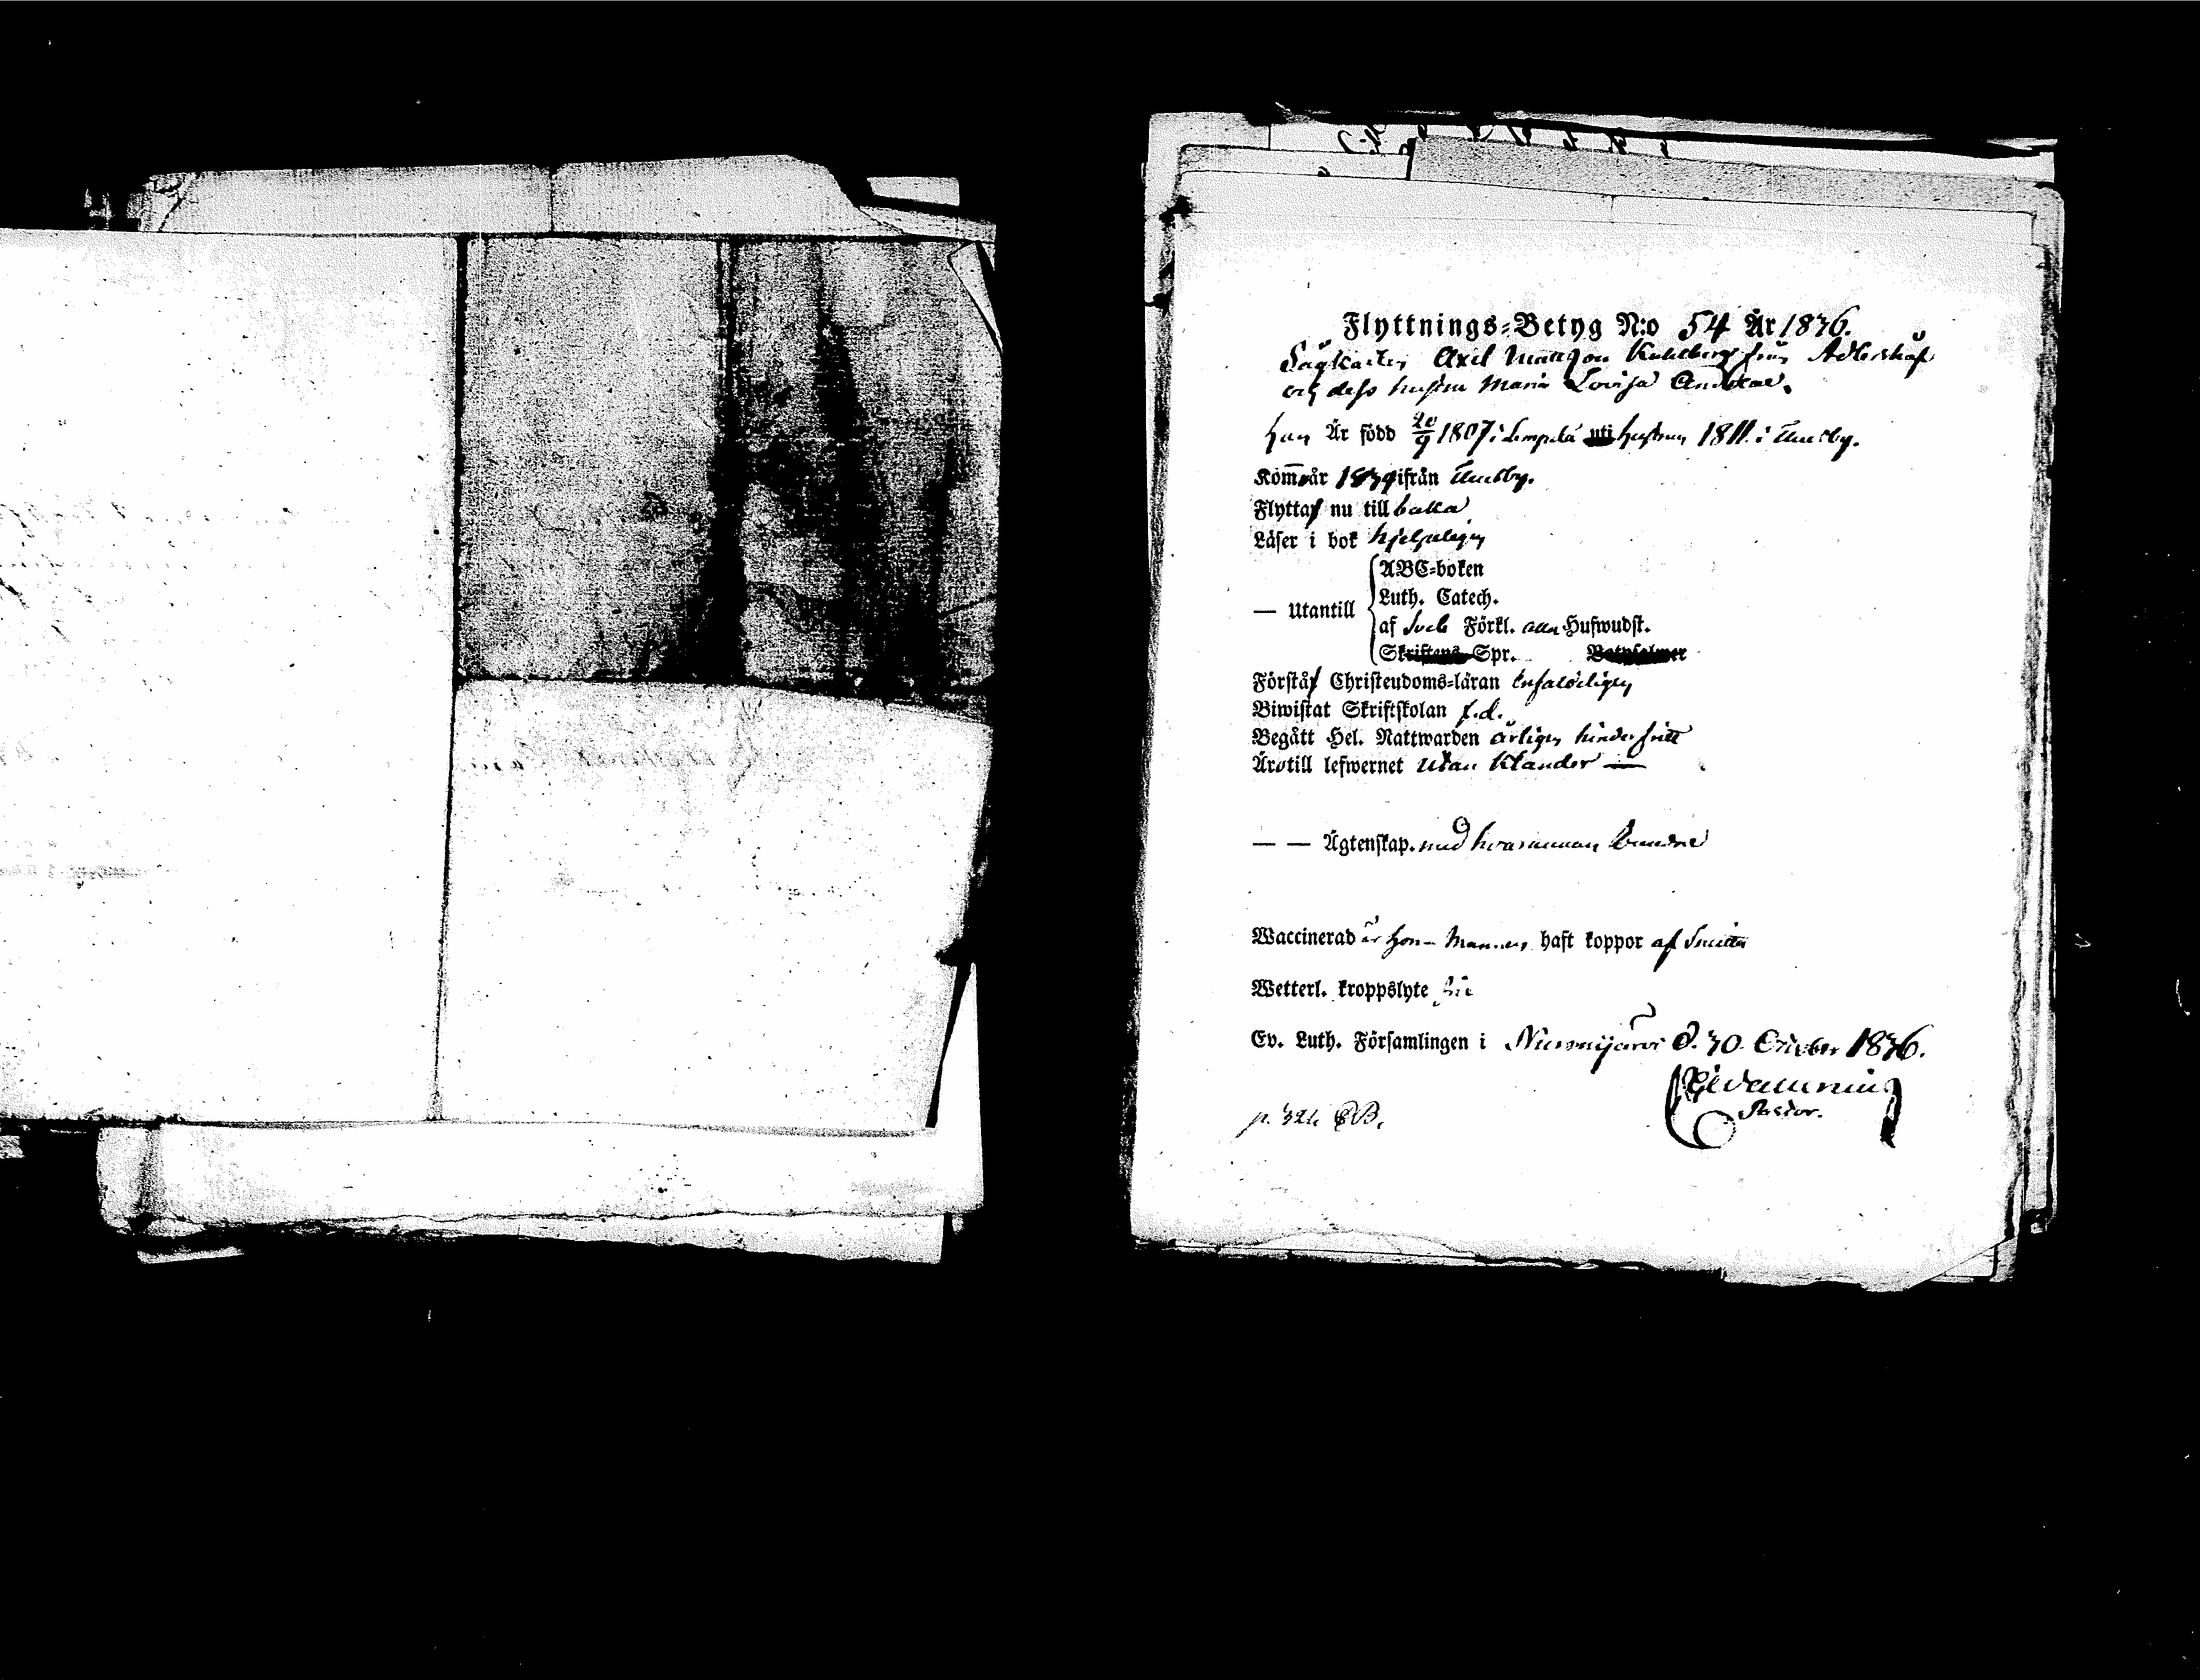 Flyttnings-Betyg N:o 54 År 1836.
Axel Mattsson Kahlberg från
och dess hustru Maria Lovisa
han Är född 20/9 1807 i Lempälä hustrun 1811 i Thusby.
Kommår 1834 ifrån Thusby.
Flytta nu till
Läser i bok hjelpligen
— Utantill
ABC-boken
Luth. Catech.
af Sveb Förkl. Hufwudst.
Skriftens Spr. Botpsalmer
Förstå Christendoms-läran enfaldeligen
Biwistat Skriftskolan f.d.
Begått Hel. Nattwarden årligen hinderfritt
Äro till lefwernet utan klander —
— — Ägtenskap. med hvarannan bundne
Waccinerad är hon – Mannen haft koppor af Smitta
Wetterl. kroppslyte
Ev. Luth. Församlingen i Nurmijärvi d. 30 October 1836.
Pastor.
p. 324